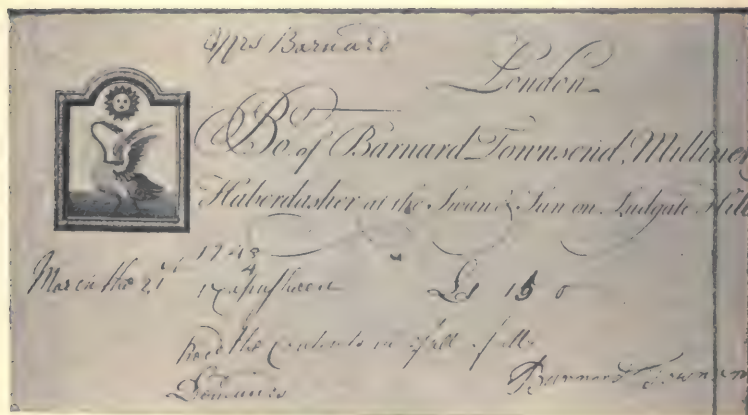 Mrs Barnard
London
Bo.t of Barnard Townsend, Milliner
Haberdasher at the Swan & Sun on Ludgate Hill
March the 21st
Recd the contents in full of all
Demands
Barnard Townsen